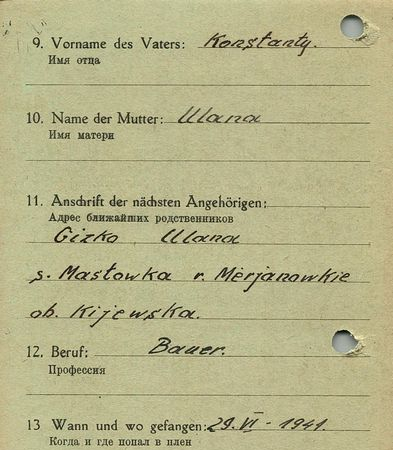 9. Vorname des Vaters: Konstanty.
Имя отца
10. Name der Mutter: Ulana
Имя матери
11. Anschrift der nächsten Angehörigen:
Адрес ближайших родственников
Gizko Ulana
s. Masłowka r. Merjanowkie
ob. Kijewska.
12. Beruf: Bauer.
Профессия
13 Wann und wo gefangen: 29. VI - 1941.
Когда и где попал в плен